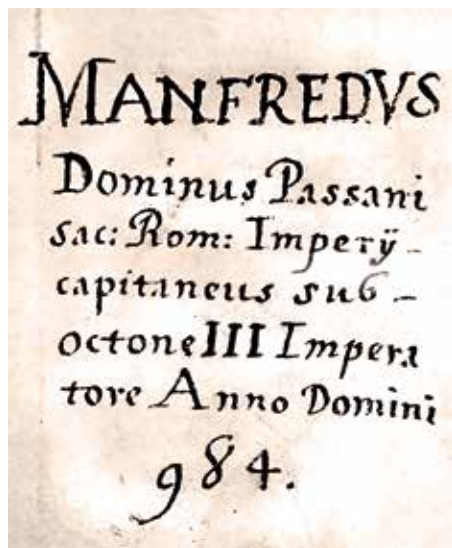 MANFREDVS
Dominus Passani
sac: Rom: Imperÿ -
capitaneus sub -
octone III Impera
tore Anno Domini
984.